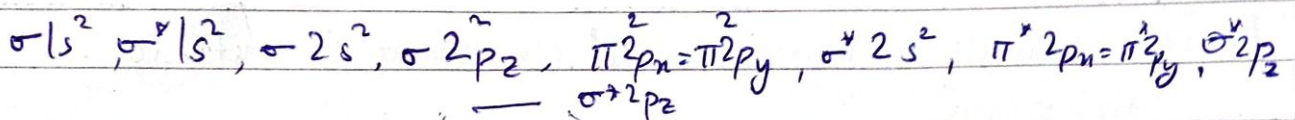 σ1s², σ*1s², σ2s², σ2p_z², π2p_x² = π2p_y², σ*2s², π*2p_x = π*2p_y, σ*2p_z
— σ*2p_z